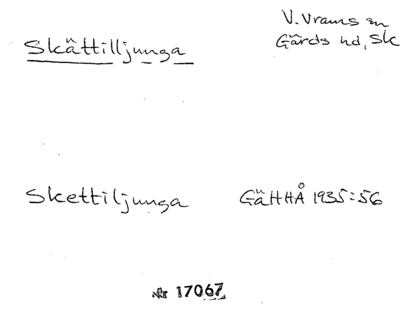 Skättilljunga
V. Vrams sn
Gärds hd, Sk
Skettiljunga
GäHHÅ 1935:56
Nr 17067